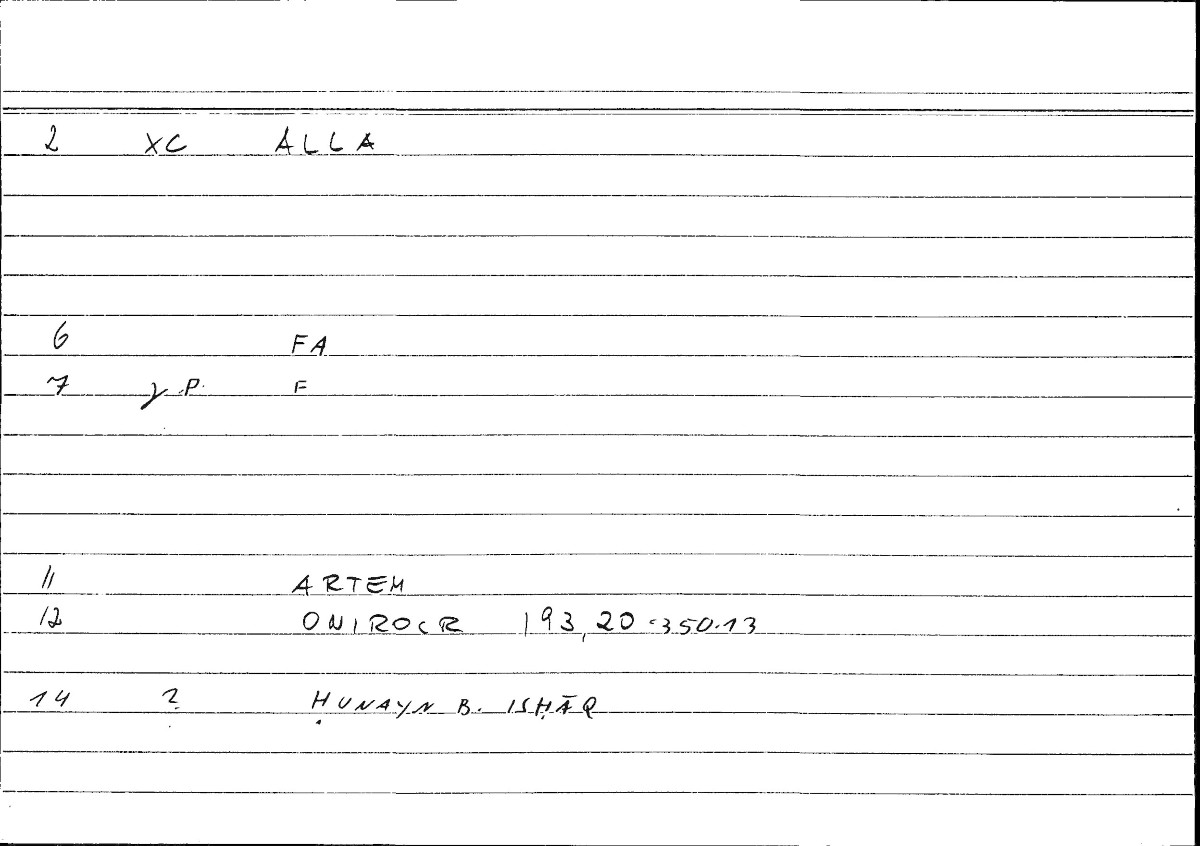 2 XC ALLA
6 FA
7 γ P. F
11 ARTEM
12 ONIROCR 193,20-350.13
14 ? ḤUNAYN B. ISḤĀQ